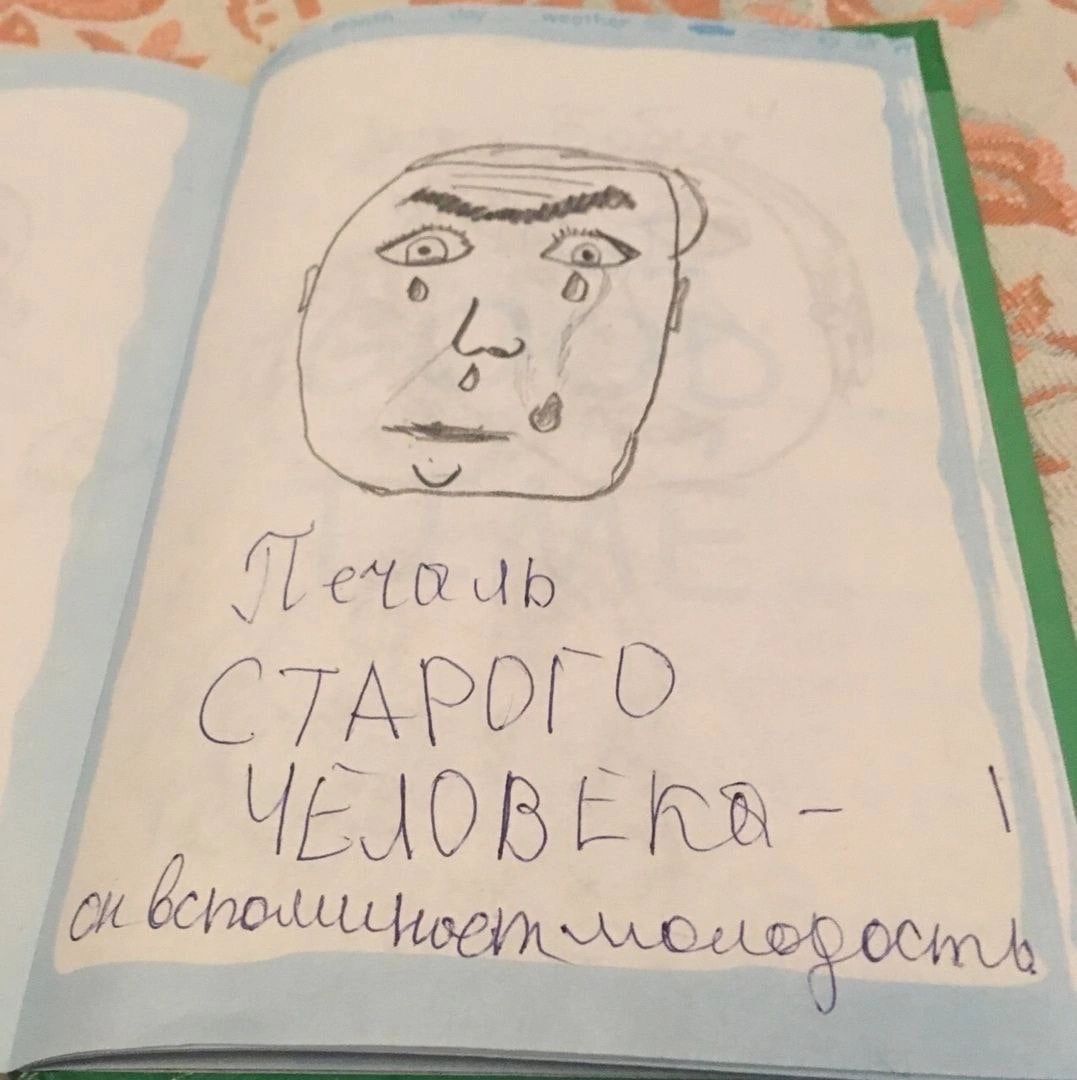 month day weather
Печаль
СТАРОГО
ЧЕЛОВЕКа -
он вспоминает молодость